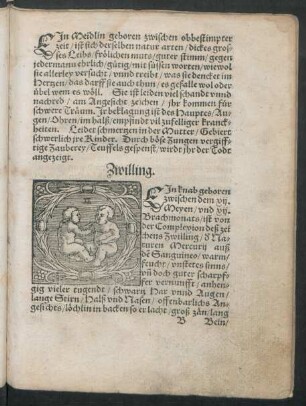 EIn Meidlin geboren zwischen obbestimpter
zeit / ist sich derselben natur arten / dickes gros-
ses Leibs / frölichen muts / guter stimm / gegen
jederman ehrlich / gütig / mit süssen worten / wiewol
sie allerley versucht / vnnd treibt / was sie dencket im
Hertzen / das darff sie auch thun / es gefalle wol oder
übel wem es wöll. Sie ist leiden viel schandt vnd
nachred / am Angesicht zeichen / jhr kommen für
schwere Träum. Jr beklagūg ist des Hauptes / Au-
gen / Ohren / im halß / empfindt vil zufelliger kranck-
heiten. Leidet schmertzen in der Mutter / Gebiert
schwerlich jre Kinder. Durch böse Zungen vergiff-
tige Zauberey / Teuffels gespenst / wirdt jhr der Todt
angezeigt.
Zwilling.
EIn knab geboren
zwischen dem
Meyen / vnd
Brachmonats / ist von
der Complexion deß zei-
chens Zwilling / d Na-
turen Mercurij auß
dē Sanguines / warm /
feucht / vnstetes sinns /
wü doch guter scharpf-
fer vernunfft / anhen-
gig vieler tugendt / schwartz Har vnnd Augen /
lange Stirn / Halß vnd Nasen / offenbarlichs An-
gesichts / löchlin in backen so er lacht / groß zän / lang
B Bein /